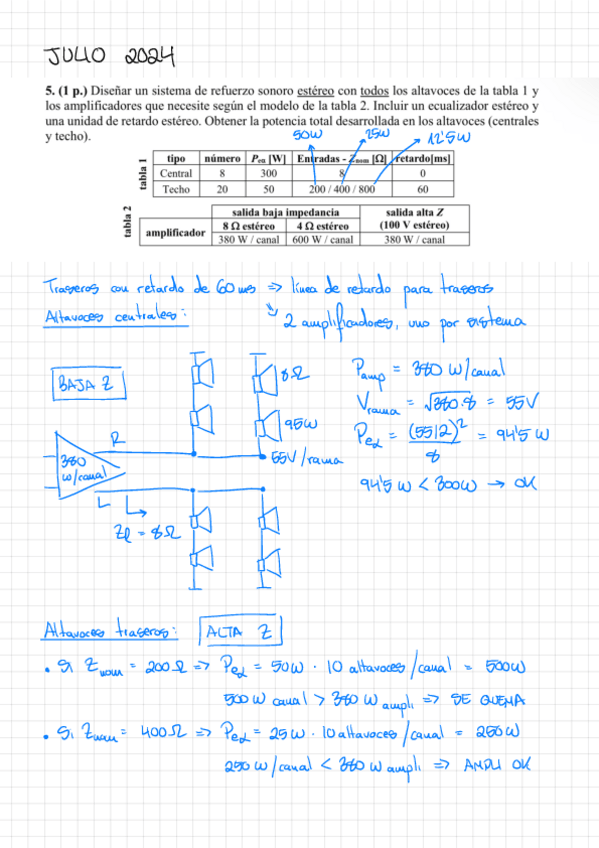 JULIO 2024
5. (1 p.) Diseñar un sistema de refuerzo sonoro estéreo con todos los altavoces de la tabla 1 y
los amplificadores que necesite según el modelo de la tabla 2. Incluir un ecualizador estéreo y
una unidad de retardo estéreo. Obtener la potencia total desarrollada en los altavoces (centrales
y techo).
50W 25W 12'5W
tabla 1
tipo número Pea [W] Entradas - Znom [Ω] retardo[ms]
Central 8 300 8 0
Techo 20 50 200 / 400 / 800 60
tabla 2
amplificador salida baja impedancia salida alta Z
8 Ω estéreo 4 Ω estéreo (100 V estéreo)
380 W / canal 600 W / canal 380 W / canal
Traseros con retardo de 60 ms => línea de retardo para traseros
Altavoces centrales:
2 amplificadores, uno por sistema
BAJA Z
8Ω
95W
55V/rama
R
380
W/canal
L
Zl = 8Ω
Pamp = 380 W/canal
Vrama = √380·8 = 55V
Pea = (55/2)² / 8 = 94'5 W
94'5 W < 300W → OK
Altavoces traseros: ALTA Z
• Si Znom = 200Ω => Pea = 50W · 10 altavoces/canal = 500W
500 W canal > 380 W ampli => SE QUEMA
• Si Znom = 400Ω => Pea = 25W · 10 altavoces/canal = 250W
250 W/canal < 380 W ampli => AMPLI OK